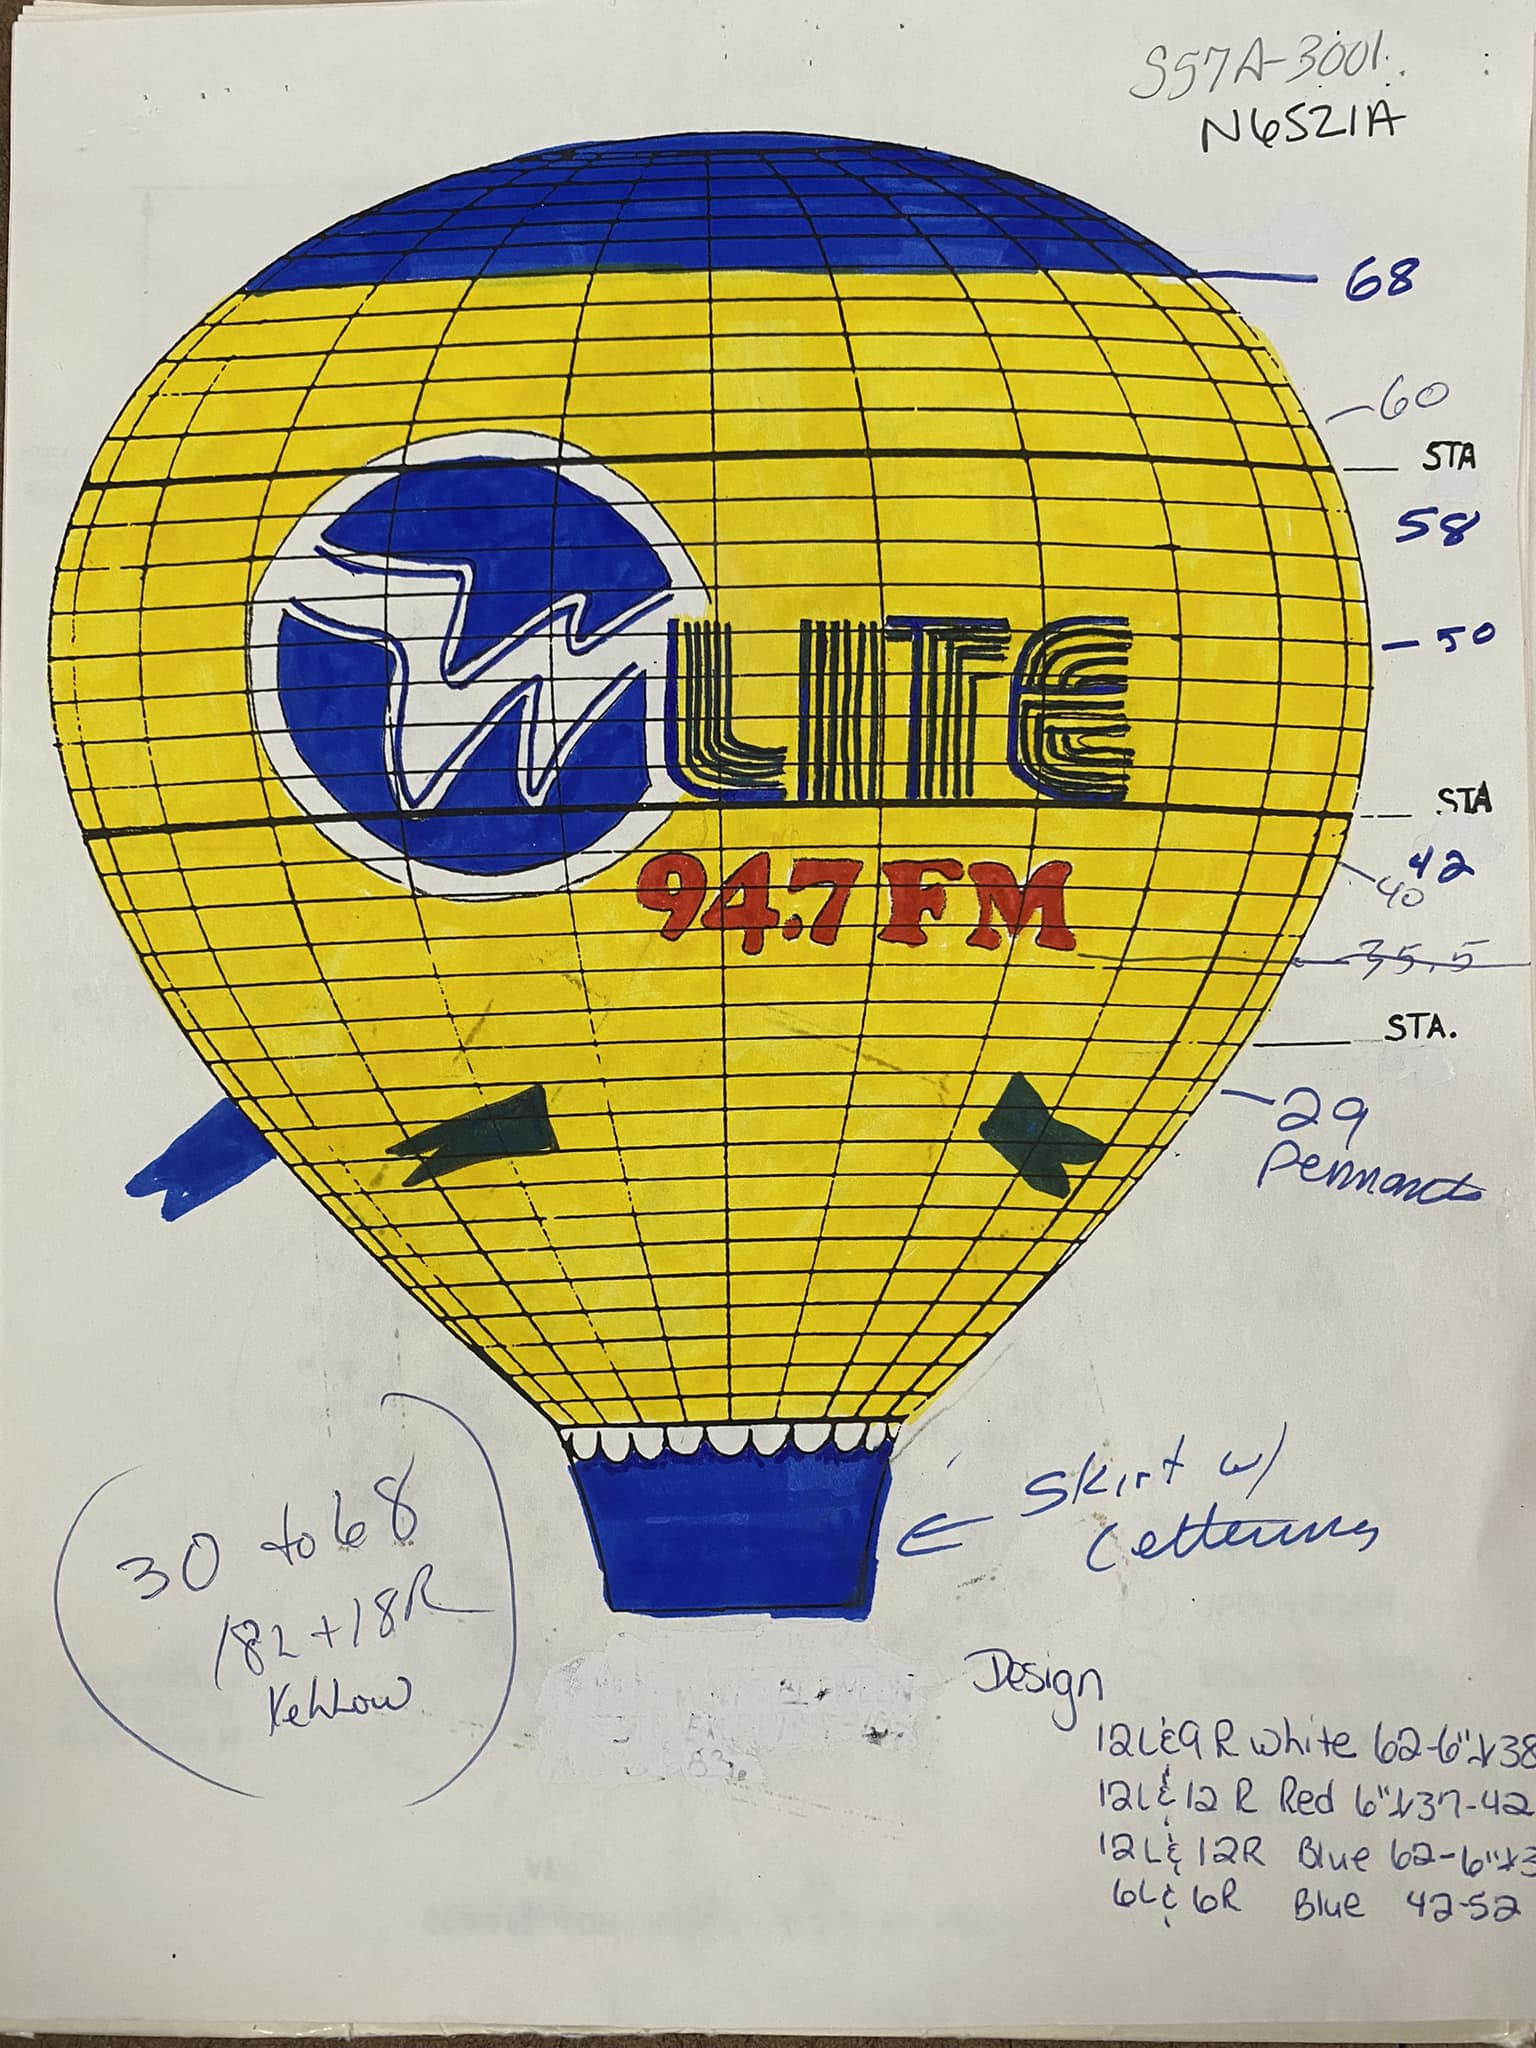 S57A-3001
N6521A
68
60
STA
58
W LITE
50
STA
94.7 FM
42
40
35.5
STA.
29
Pennant
Skirt w/
Lettering
30 to 68
18L + 18R
Yellow
Design
12L & 9R White 62-6"↓38
12L & 12R Red 6"↓37-42
12L & 12R Blue 62-6"↓3
6L & 6R Blue 42-52